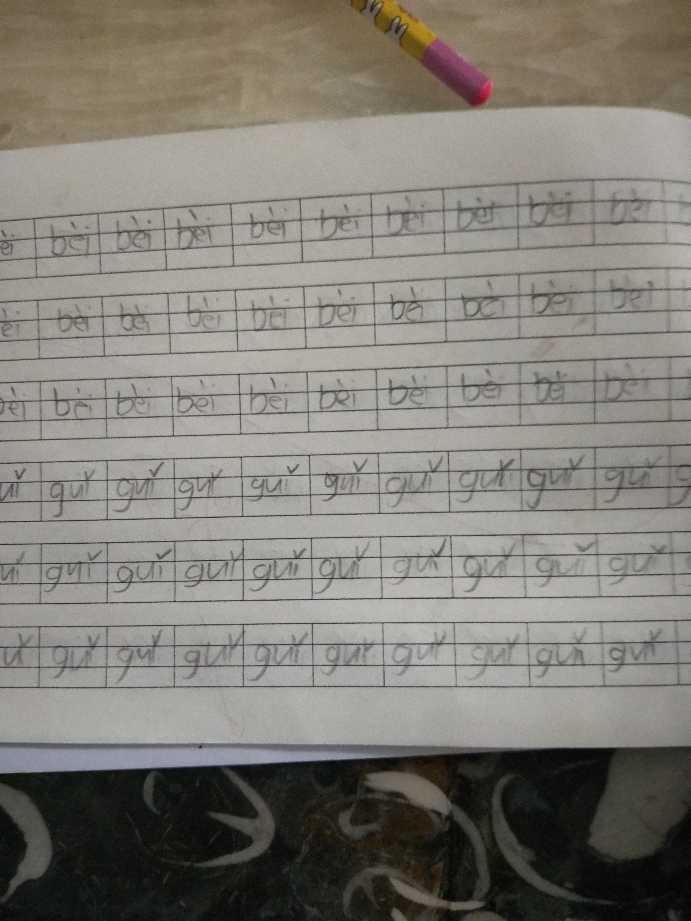 èi bèi bèi bèi bèi bèi bèi bèi bèi bèi
èi bèi bèi bèi bèi bèi bèi bèi bèi bèi
bèi bèi bèi bèi bèi bèi bèi bèi bèi bèi
uǐ guǐ guǐ guǐ guǐ guǐ guǐ guǐ guǐ guǐ g
uǐ guǐ guǐ guǐ guǐ guǐ guǐ guǐ guǐ guǐ
uǐ guǐ guǐ guǐ guǐ guǐ guǐ guǐ guǐ guǐ